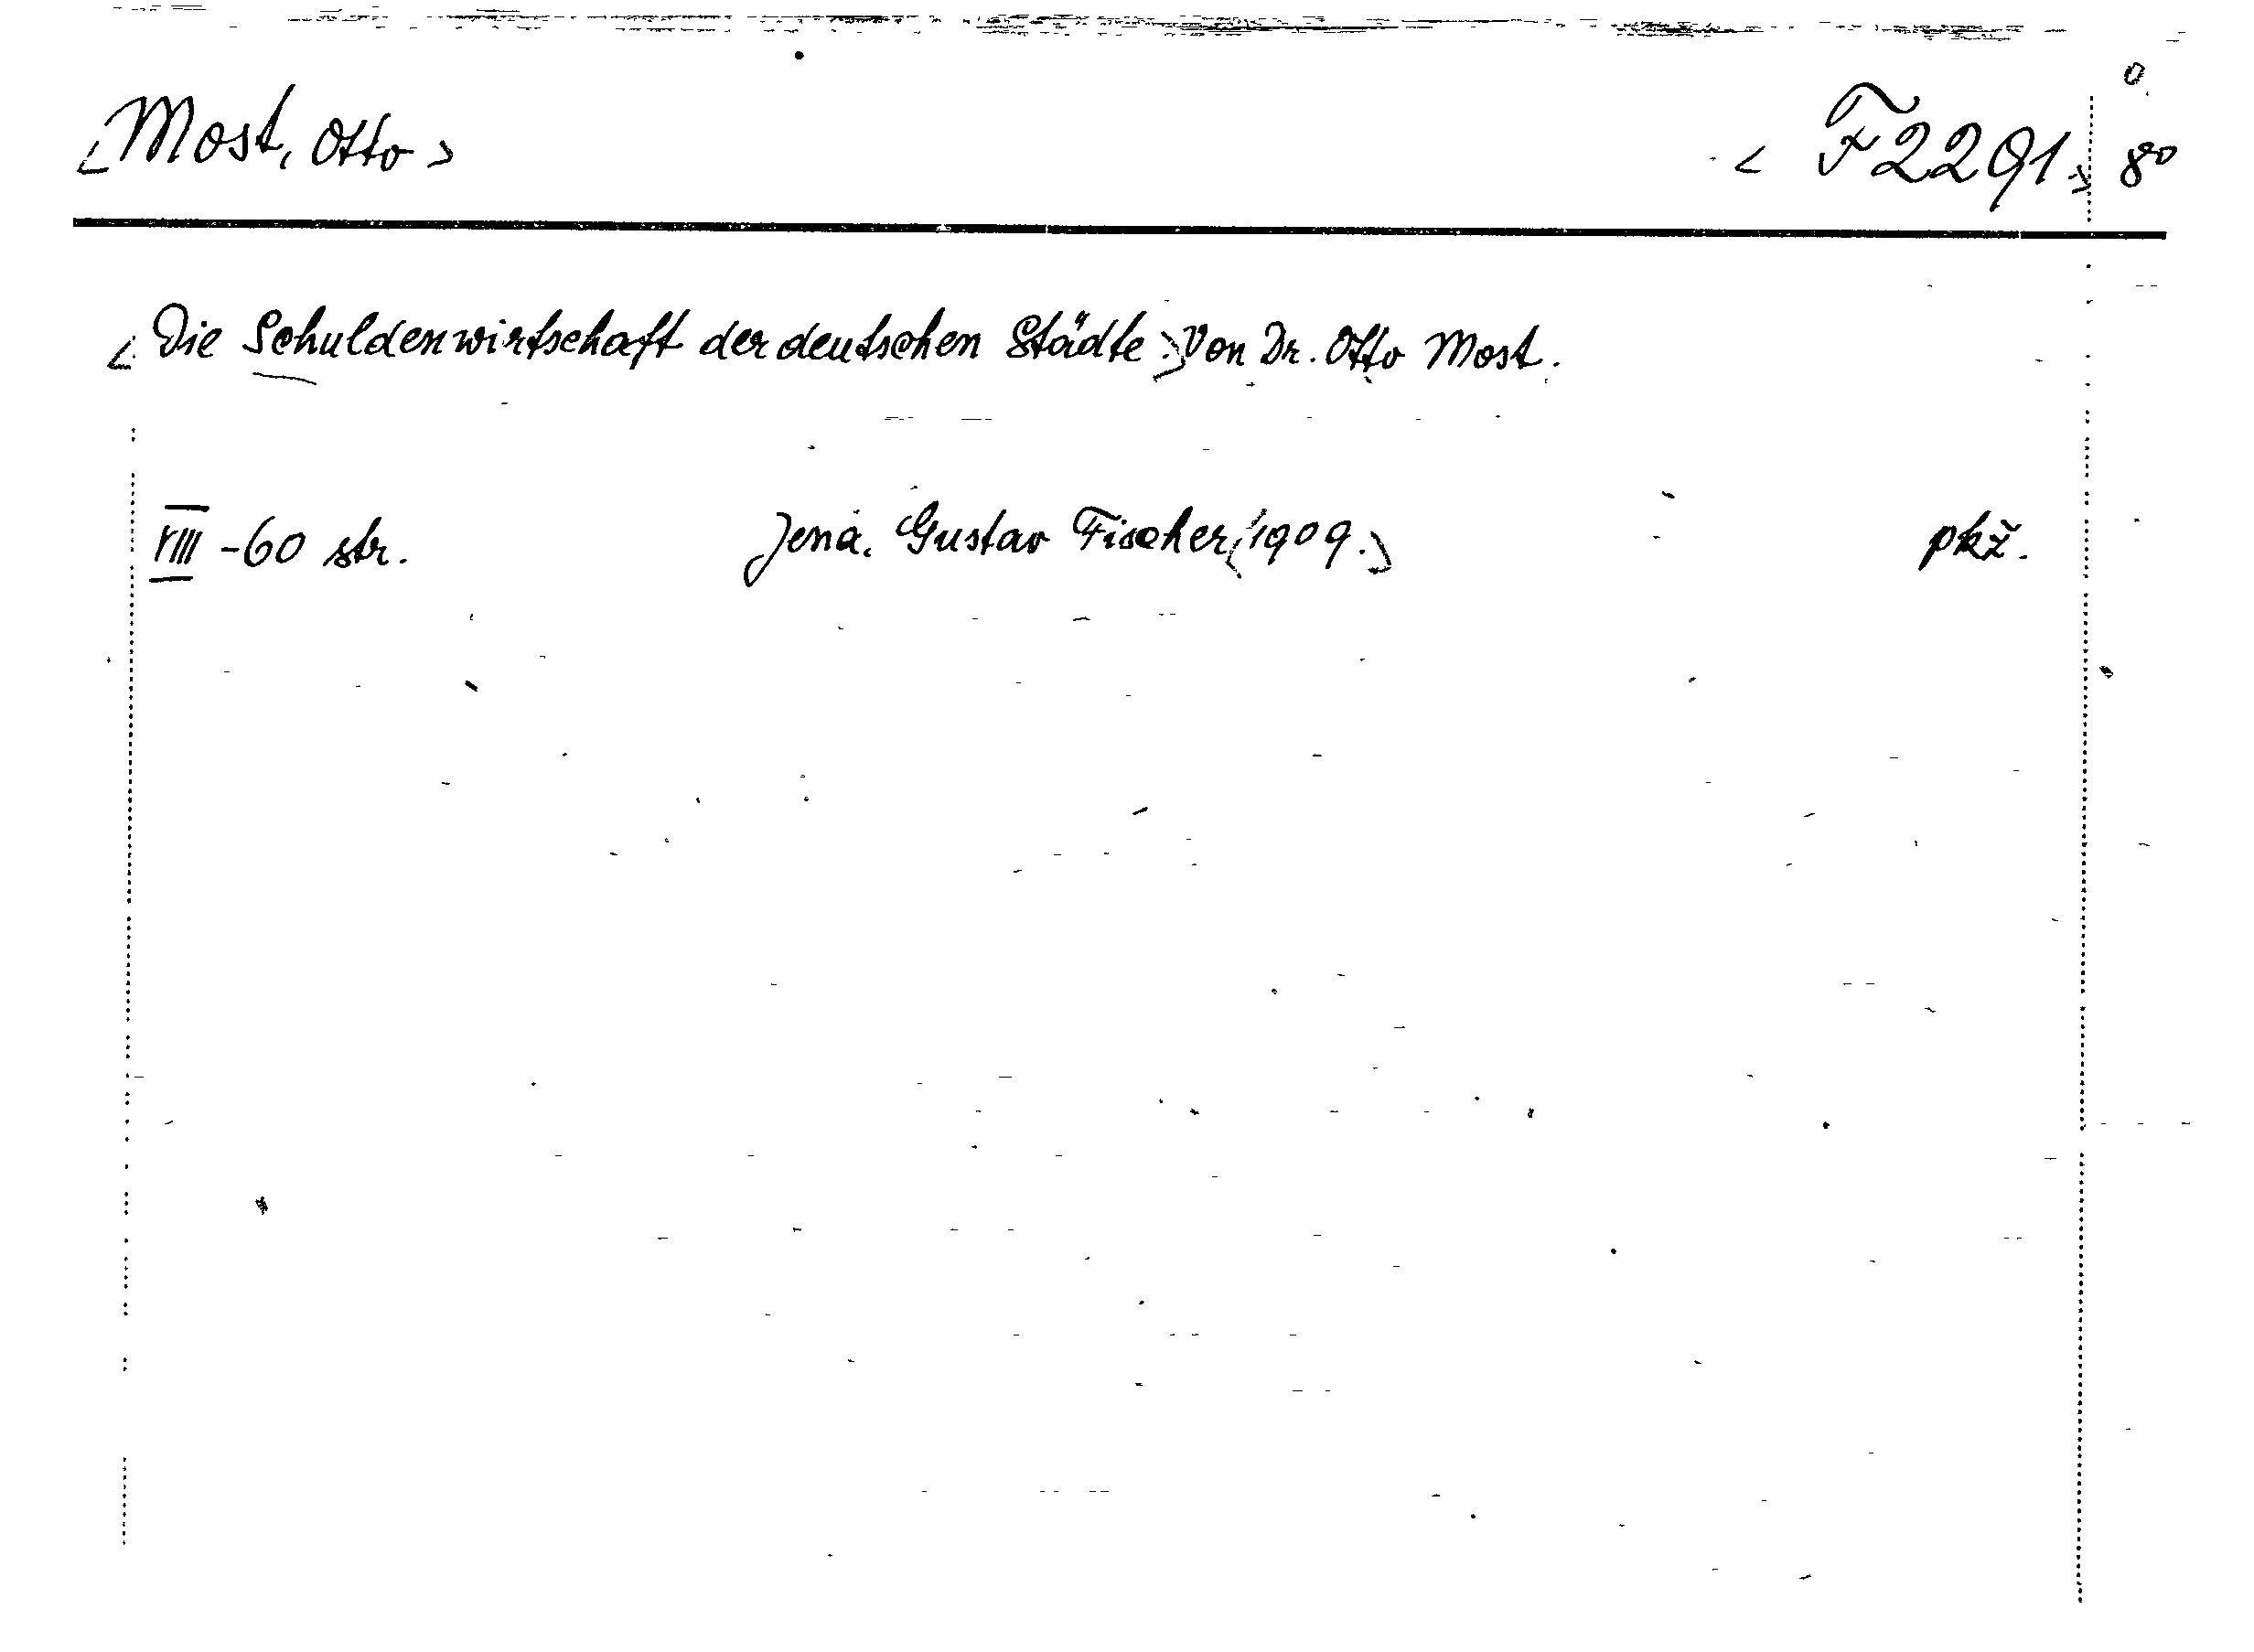 <Most, Otto> < F2291> 8º
<Die Schuldenwirtschaft der deutschen Städte.> Von Dr. Otto Most.
VIII - 60 str. Jena, Gustav Fischer, <1909.> pkž.